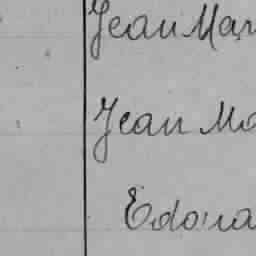 Jean Mar
Jean Ma
Edoua